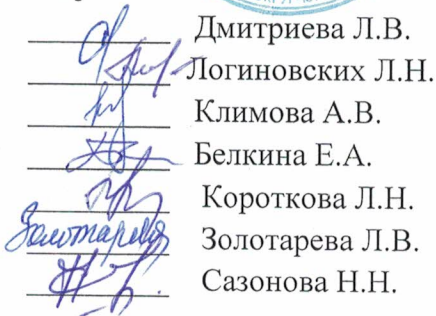 Дмитриева Л.В.
Логиновских Л.Н.
Климова А.В.
Белкина Е.А.
Короткова Л.Н.
Золотарева Золотарева Л.В.
Сазонова Н.Н.